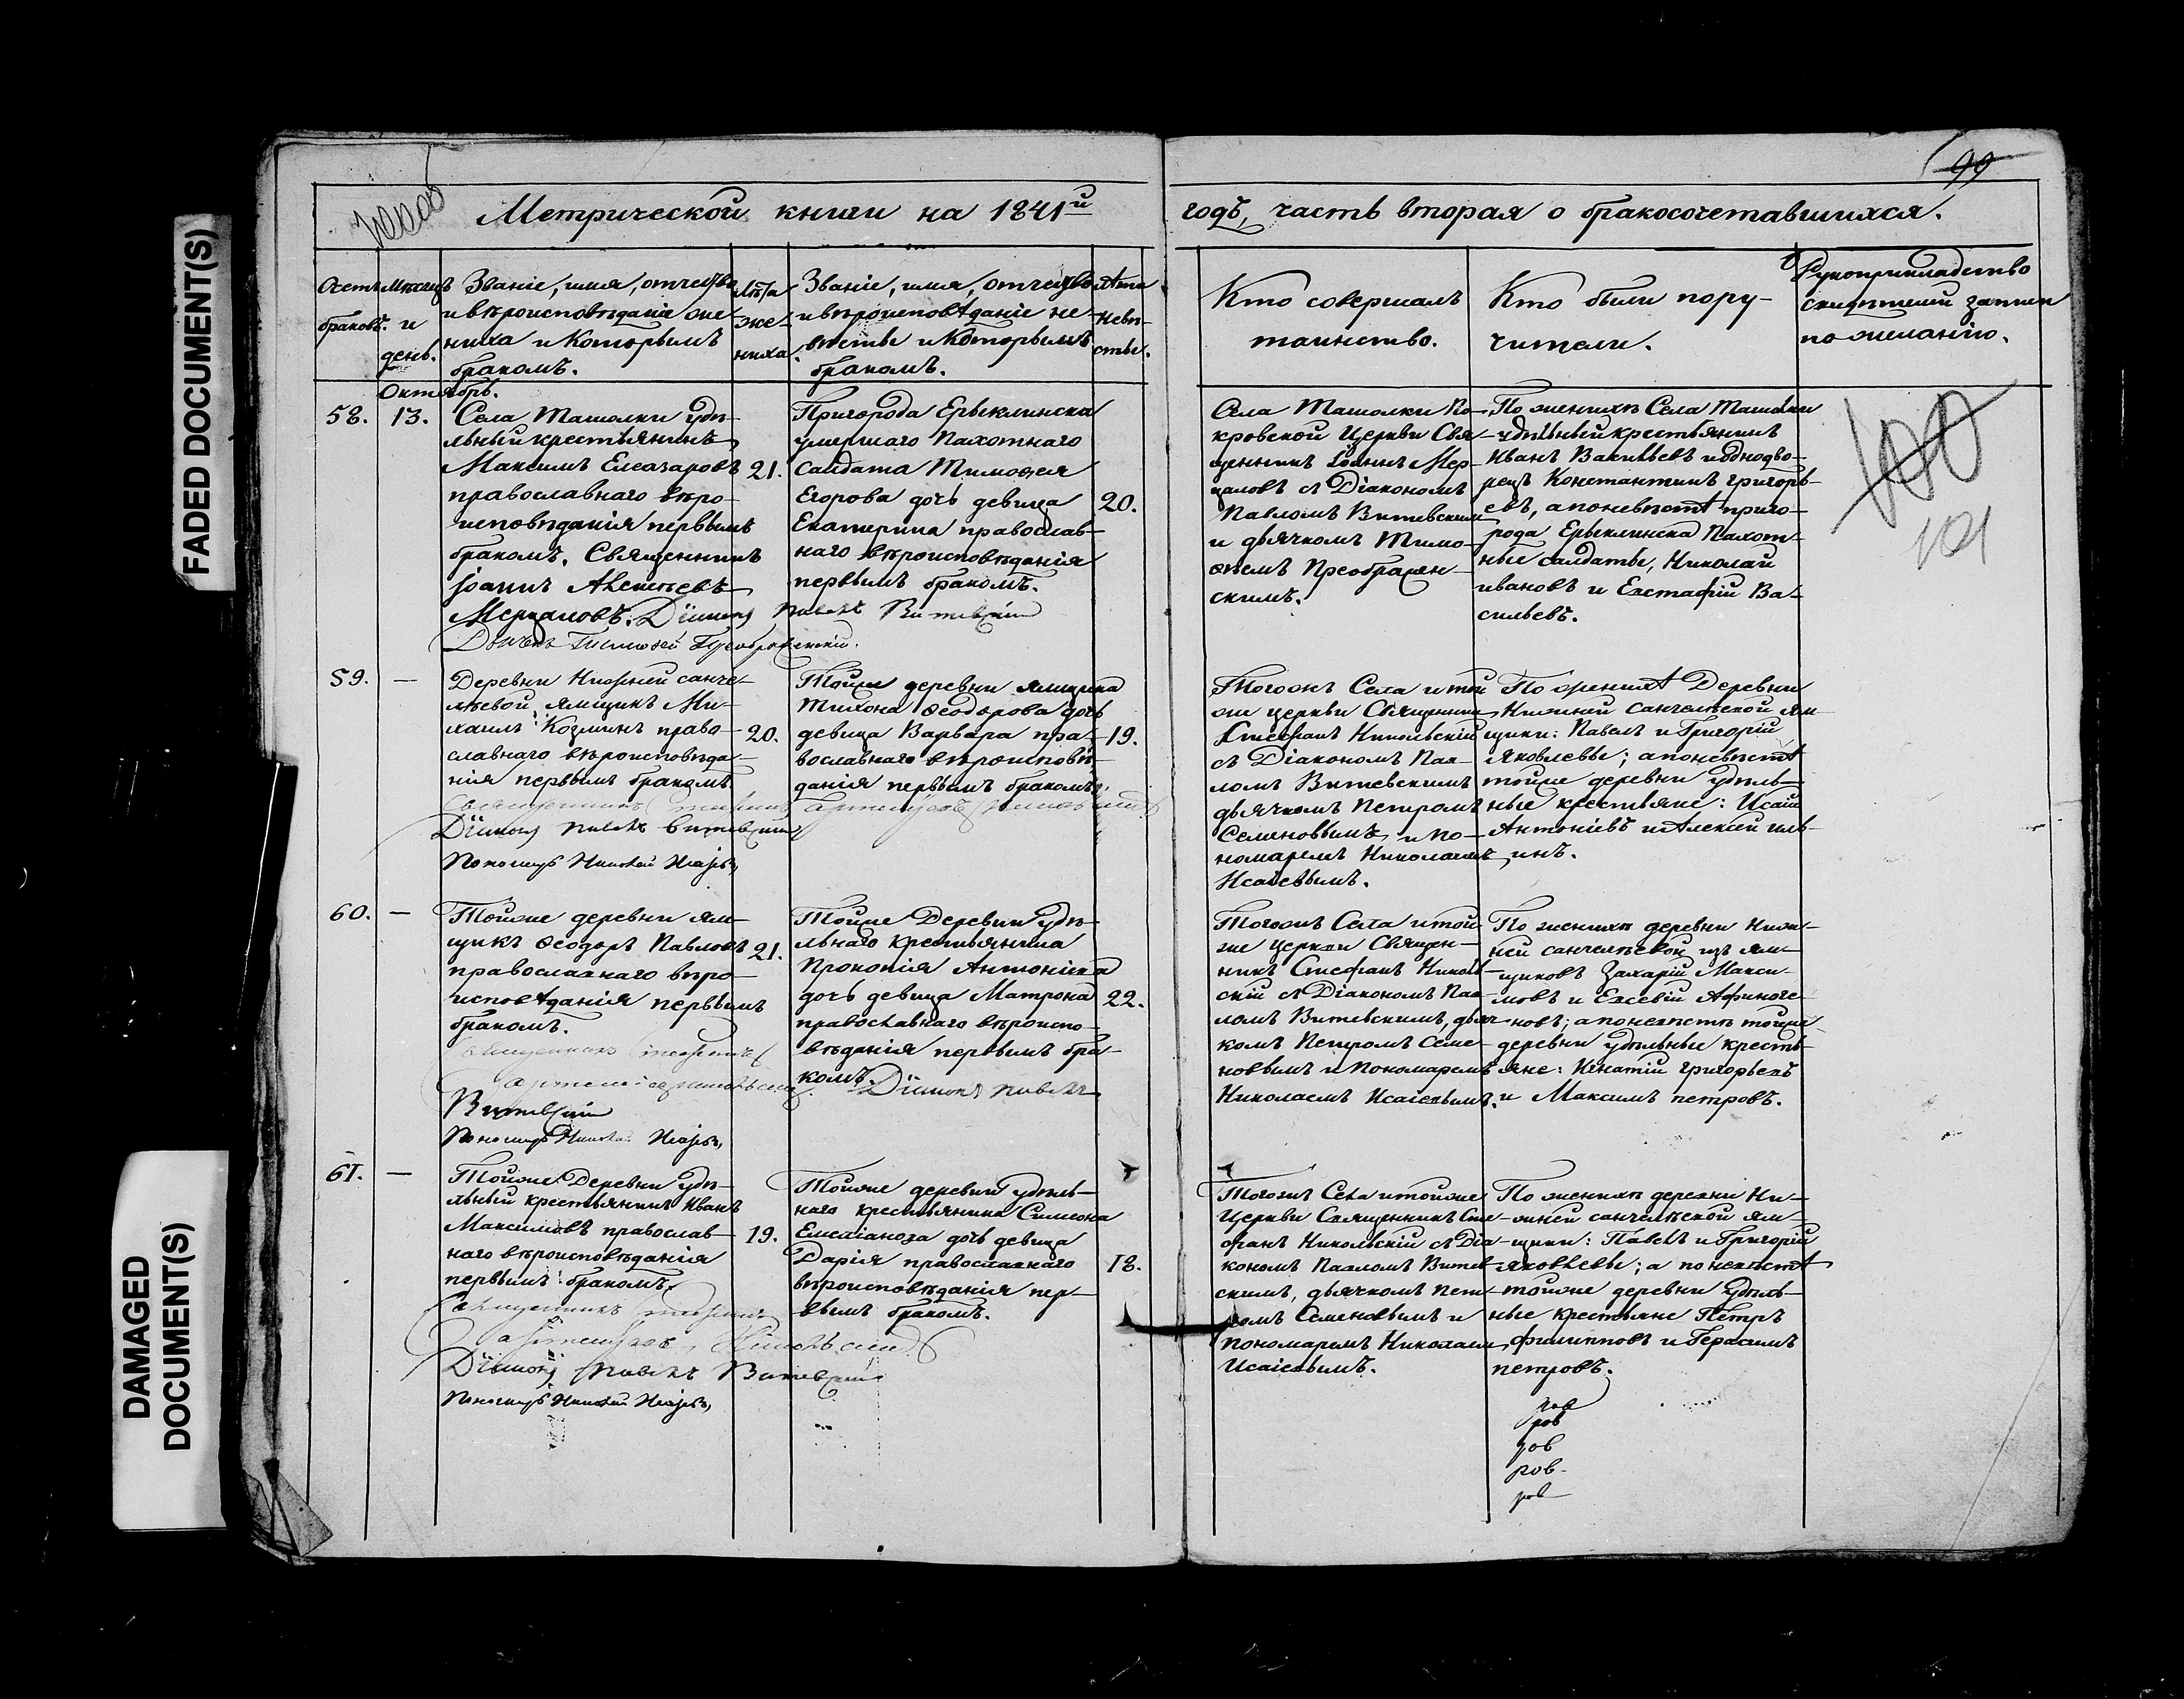 99
Метрической книги на 1841й
годъ, часть вторая о бракосочетавшихся.
Счетъ браковъ.
Мѣсяцъ
и
день.
Званіе, имя, отчество
и вѣроисповѣданіе же-
ниха и которымъ
бракомъ.
Лѣта
же-
ниха.
Званіе, имя, отчество
и вѣроисповѣданіе не-
вѣсты и которымъ
бракомъ.
Лѣта
невѣ-
сты.
Кто совершалъ
таинство.
Кто были пору-
чители.
Рукоприкладство
свидѣтелей записи
по желанію.
Октябрь.
58.
13.
Села Ташолки удѣ-
льный крестьянинъ
Максимъ Елеазаровъ
православнаго вѣро-
исповѣданія первымъ
бракомъ. Священникъ
Іоаннъ Алексѣевъ
Мерцаловъ. Діаконъ Павелъ Витевскій
Дьячекъ Тимофей Преображенскій.
21.
Пригорода Ерыклинска
умершаго Пахотнаго
Салдата Тимоѳея
Егорова дочь девица
Екатерина православ-
наго вѣроисповѣданія
первымъ бракомъ.
20.
Села Ташолки По-
кровской Церкви Свя-
щенникъ Іоаннъ Мер-
цаловъ съ Діакономъ
Павломъ Витевскимъ
и дьячкомъ Тимо-
ѳеемъ Преображен-
скимъ.
По женихѣ Села Ташолки
удѣльный крестьянинъ
Иванъ Васильевъ и однодво-
рецъ Константинъ Григорь-
евъ, а по невѣстѣ приго-
рода Ерыклинска Пахот-
ные салдаты, Николай
Ивановъ и Евстафій Ва-
сильевъ.
101
59.
—
Деревни Нижней санче-
лѣевой ямщикъ Ми-
хаилъ Козминъ право-
славнаго вѣроисповѣда-
нія первымъ бракомъ.
Священникъ Стефанъ Никольскій
Діаконъ Павелъ Витевскій
Пономарь Николай Исаіевъ
20.
Тойже деревни ямщика
Тихона Ѳеодорова дочь
девица Варвара пра-
вославнаго вѣроисповѣ-
данія первымъ бракомъ.
19.
Тогожъ Села и той
же церкви Священникъ
Стефанъ Никольскій
съ Діакономъ Пав-
ломъ Витевскимъ
дьячкомъ Петромъ
Семеновымъ и по-
номаремъ Николаемъ
Исаіевымъ.
По женихѣ Деревни
Нижней санчелѣевой ям-
щики: Павелъ и Григорій
Яковлевы; а по невѣстѣ
тойже деревни удѣль-
ные крестьяне: Исай
Антоніевъ и Алексей Иль-
инъ.
60.
—
Тойже деревни ям-
щикъ Ѳеодоръ Павловъ
православнаго вѣро-
исповѣданія первымъ
бракомъ.
Священникъ Стефанъ
Никольскій. Діаконъ Павелъ
Витевскій
Пономарь Николай Исаіевъ
21.
Тойже Деревни удѣ-
льнаго крестьянина
Прокопія Антоніева
дочь девица Матрона
православнаго вѣроиспо-
вѣданія первымъ бра-
комъ.
22.
Тогожъ Села и той
же церкви Священ-
никъ Стефанъ Николь-
скій съ Діакономъ Пав-
ломъ Витевскимъ, дьяч-
комъ Петромъ Семе-
новымъ и Пономаремъ
Николаемъ Исаіевымъ.
По женихѣ деревни Ниж-
ней санчелѣевой изъ ям-
щиковъ Захарій Макси-
мовъ и Евсевій Афиноге-
новъ; а по невѣстѣ тойже
деревни удѣльные кресть-
яне: Игнатій Григорьевъ
и Максимъ петровъ.
61.
—
Тойже Деревни удѣ-
льный крестьянинъ Иванъ
Максимовъ православ-
наго вѣроисповѣданія
первымъ бракомъ.
Священникъ Стефанъ
Никольскій
Діаконъ Павелъ Витевскій
Пономарь Николай Исаіевъ
19.
Тойже деревни удѣль-
наго крестьянина Симеона
Емелианова дочь девица
Дарія православнаго
вѣроисповѣданія пер-
вымъ бракомъ.
18.
Тогожъ Села и тойже
Церкви Священникъ Сте-
фанъ Никольскій съ Діа-
кономъ Павломъ Витев-
скимъ, дьячкомъ Пет-
ромъ Семеновымъ и
пономаремъ Николаемъ
Исаіевымъ.
По женихѣ деревни Ни-
жней санчелѣевой ям-
щики: Павелъ и Григорій
Яковлевы; а по невѣстѣ
тойже деревни удѣль-
ные крестьяне Петръ
Филипповъ и Герасимъ
петровъ.
ров
ров
ров
ров
ров
FADED DOCUMENT(S)
DAMAGED
DOCUMENT(S)